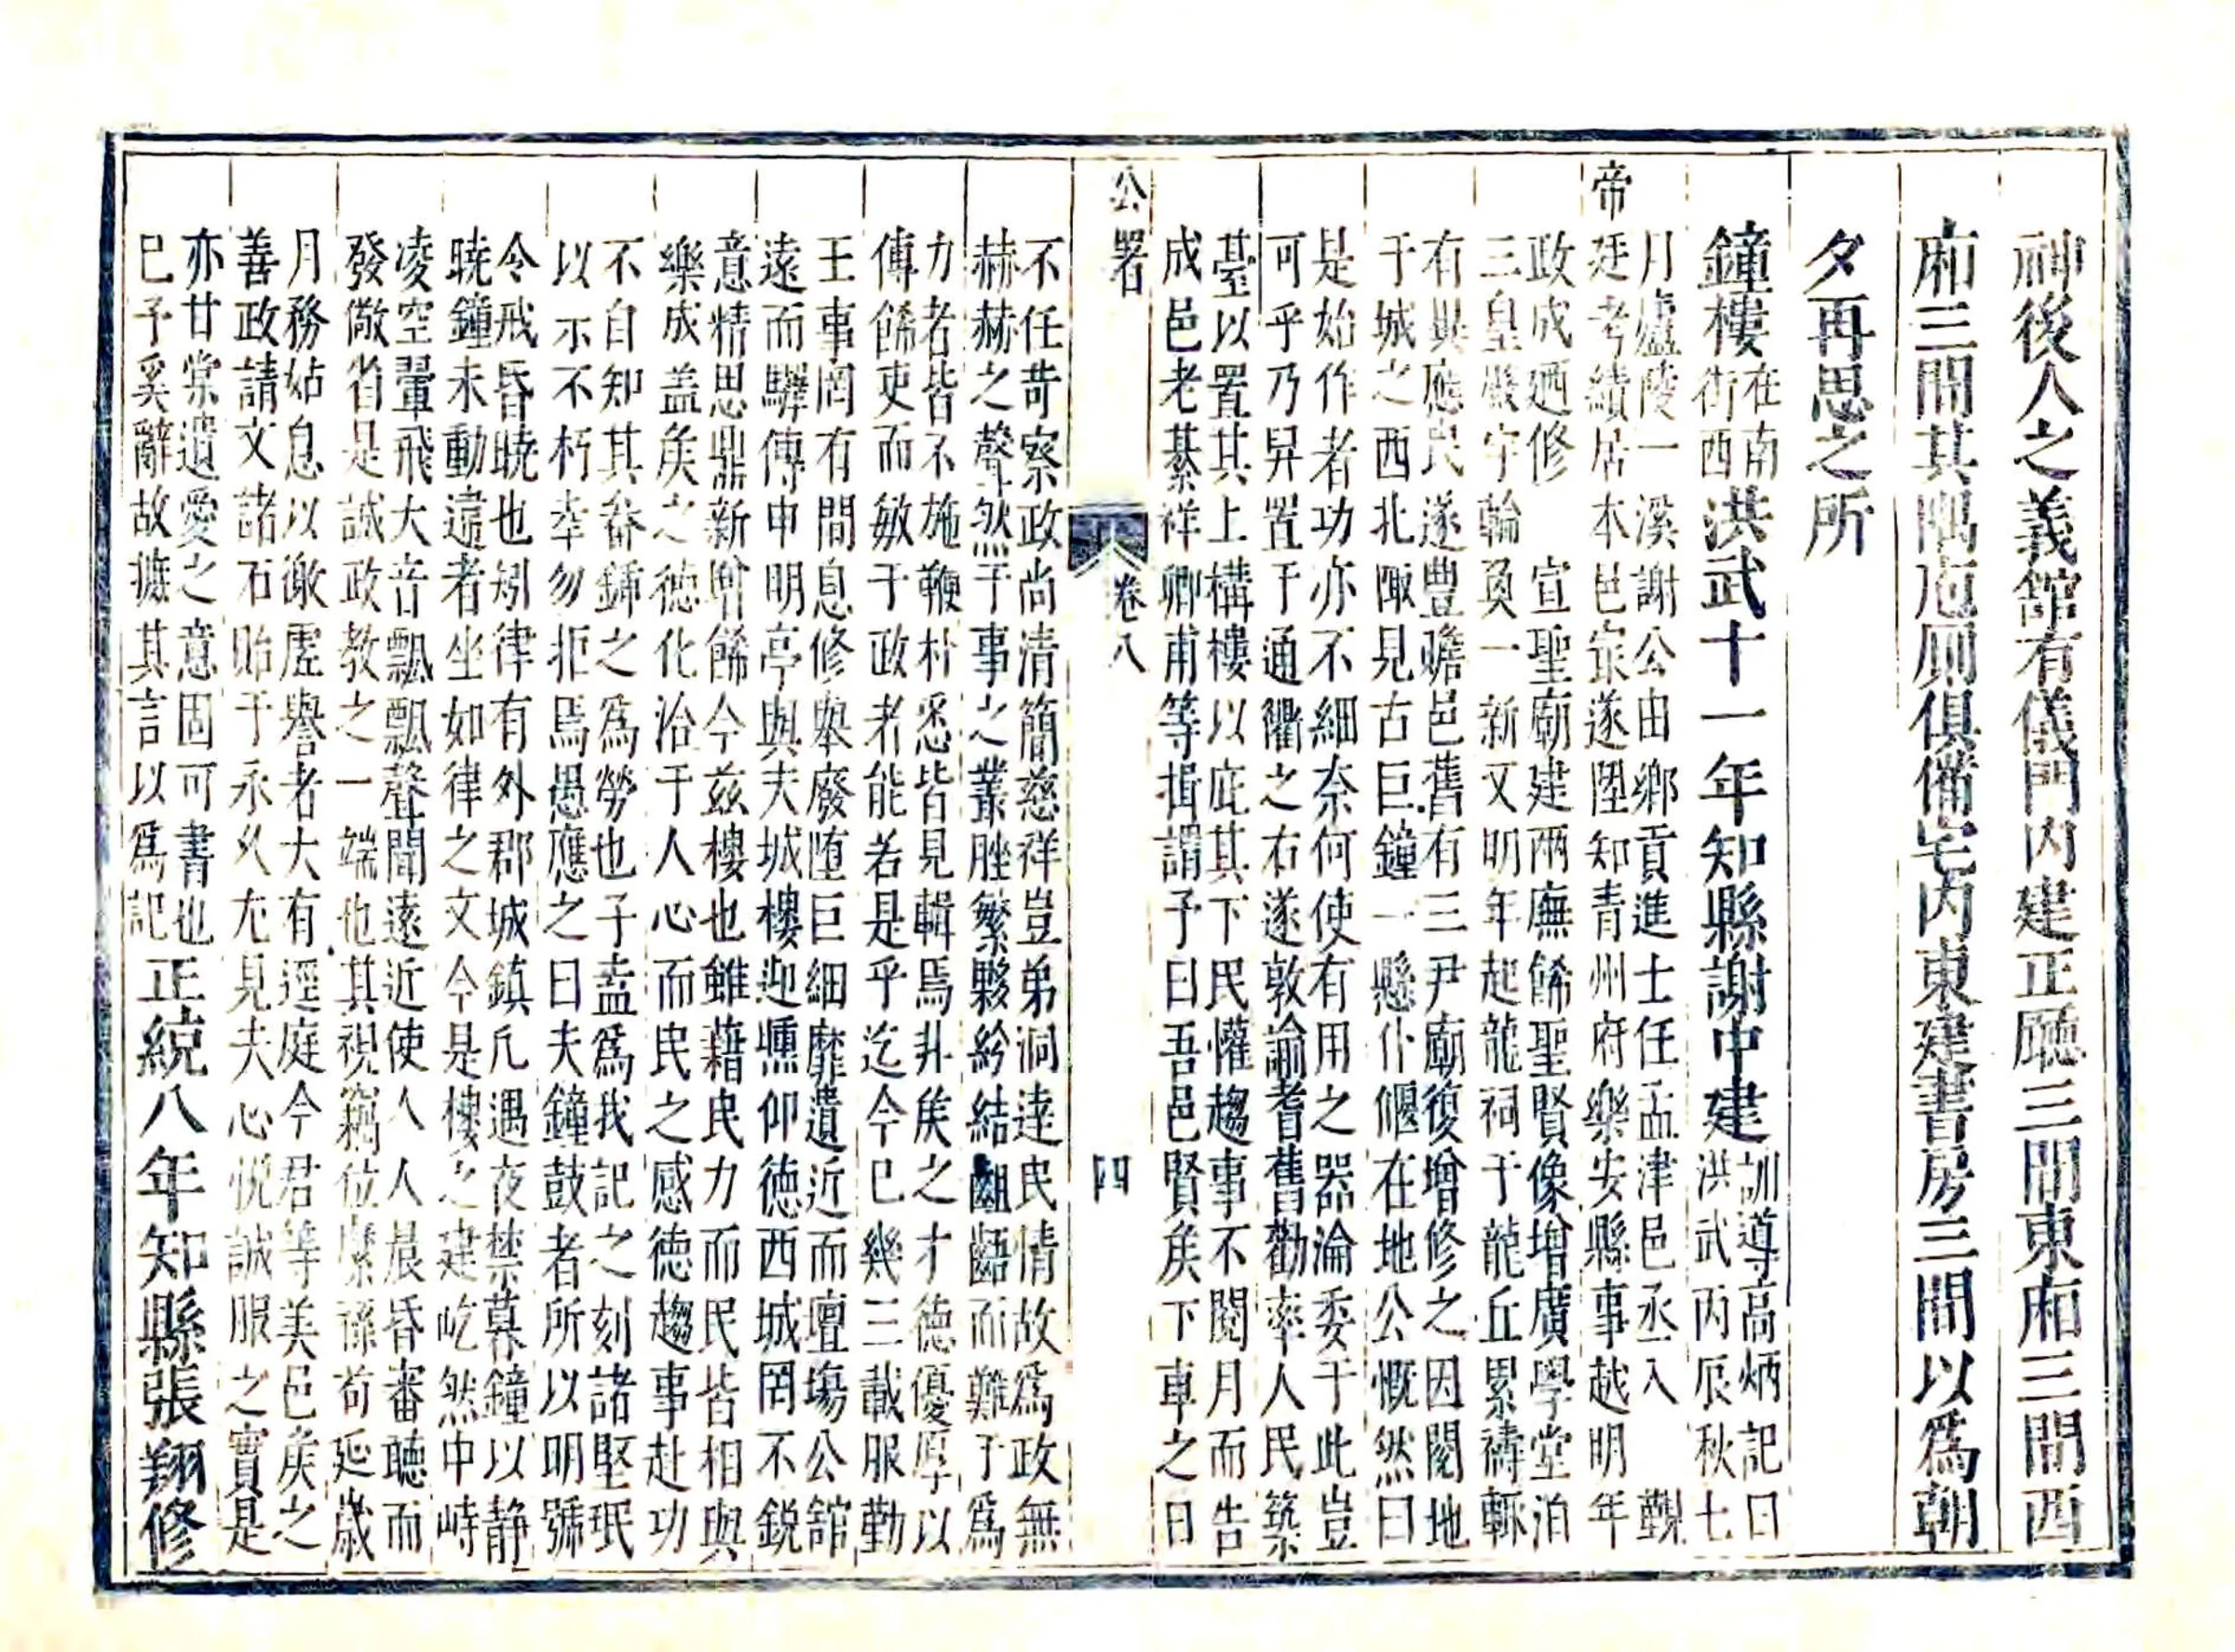 神後人之義舘有儀門内建正廳三間東廂三間西
廂三間其隅庖厠俱備宅内東建書房三間以爲朝
夕再思之所
鐘樓在南街西洪武十一年知縣謝中建訓導高炳記曰
洪武丙辰秋七
月廬陵一溪謝公由鄉貢進士任孟津邑丞入 覲
帝廷考績居本邑㝡遂陞知青州府樂安縣事越明年
政成廼修 宣聖廟建兩廡餙聖賢像增廣學堂洎
三皇殿宇輪奐一新又明年起龍祠于龍丘累禱輒
有興應民遂豊贍邑舊有三尹廟復增修之因閱地
于城之西北陬見古巨鐘一懸仆偃在地公慨然曰
是始作者功亦不細奈何使有用之器淪委于此豈
可乎乃舁置于通衢之右遂敦諭耆舊勸率人民築
䑓以置其上構樓以庇其下民懽趨事不閱月而告
成邑老綦祥卿甫等揖謂予曰吾邑賢矦下車之日
公署 卷八 四
不任苛察政尚清簡慈祥豈弟洞達民情故爲政無
赫赫之聲然于事之叢脞繁夥紛結齟齬而難于爲
力者皆不施鞭朴悉皆見輯焉非矦之才德優厚以
傳餙吏而敏于政者能若是乎迄今巳幾三載服勤
王事罔有間息修舉廢墮巨細靡遺近而壇塲公舘
遠而驛傳申明亭與夫城樓迎曛仰德西城罔不銳
意精思鼎新增餙今兹樓也雖藉民力而民皆相與
樂成盖矦之德化洽于人心而民之感德趨事赴功
不自知其畚鍤之爲勞也子盍爲我記之刻諸堅珉
以示不朽幸勿拒焉愚應之曰夫鐘鼓者所以明號
令戒昏曉也矧律有外郡城鎮凡遇夜禁暮鐘以静
曉鐘未動違者坐如律之文今是樓之建屹然中峙
凌空翬飛大音飄飄聲聞遠近使人人晨昏審聽而
發儆省是誠政教之一端也其視竊位縻祿苟延歲
月務姑息以邀虛譽者大有逕庭今君等美邑矦之
善政請文諸石貽于永乆尢見夫心悦誠服之實是
亦甘棠遺愛之意固可書也
巳予奚辭故摭其言以爲記正統八年知縣張翔修